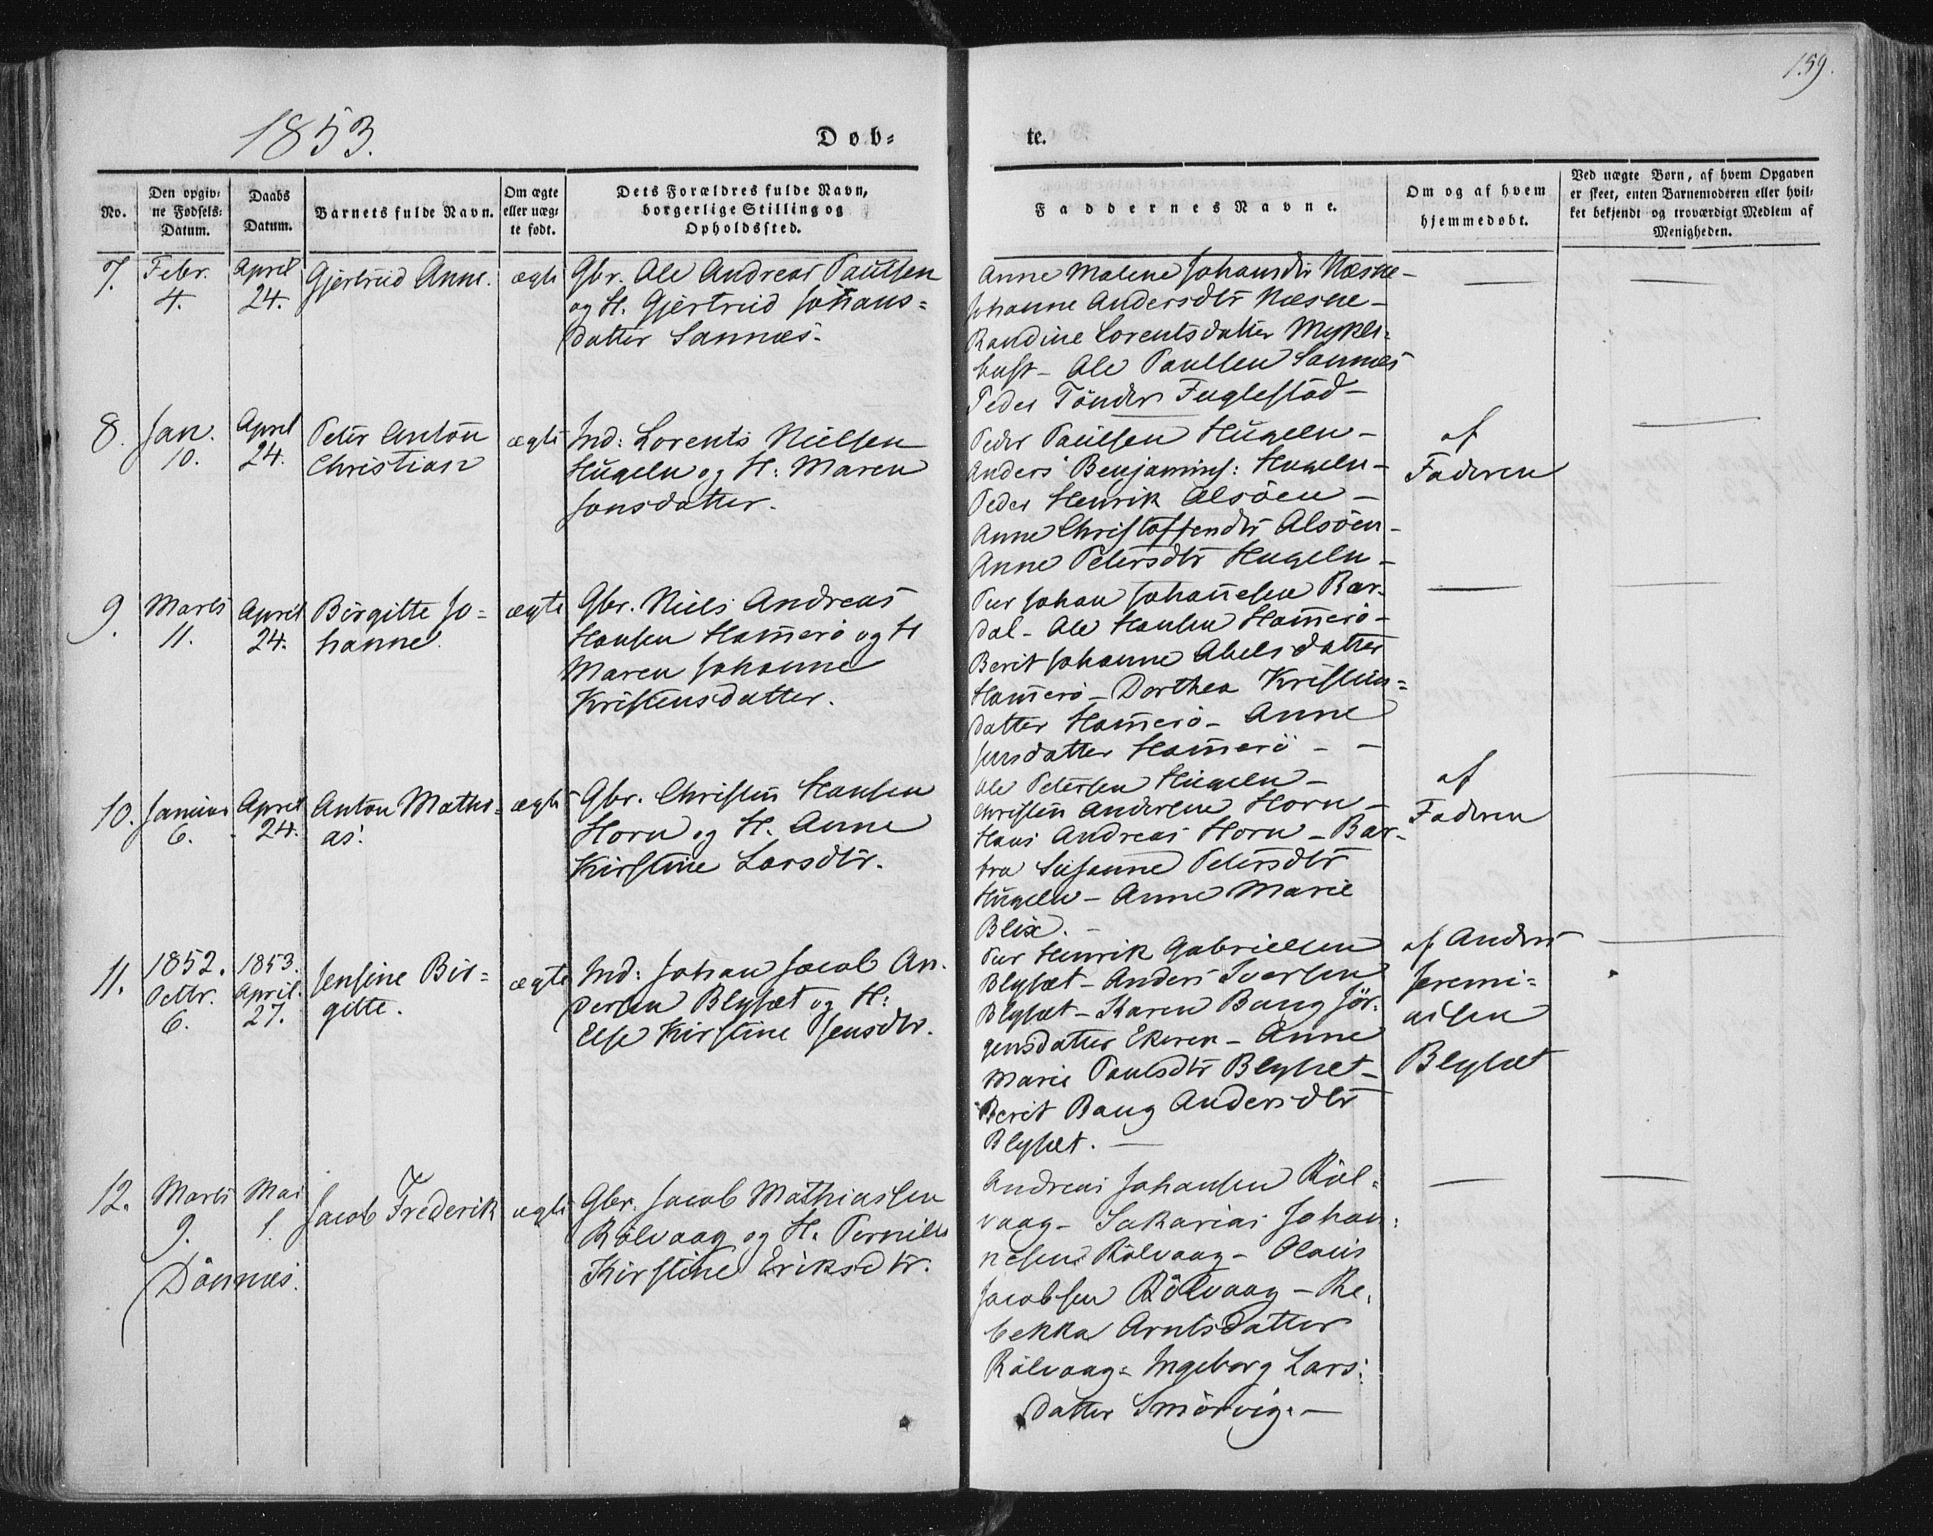 159.
1853.
Døb=
te.
No.
Den opgiv=
ne Fødsels=
Datum.
Daabs
Datum.
Barnets fulde Navn.
Om ægte
eller uæg=
te født.
Dets Forældres fulde Navn,
borgerlige Stilling og
Opholdssted.
Faddernes Navne.
Om og af hvem
hjemmedøbt.
Ved uægte Børn, af hvem Opgaven
er skeet, enten Barnemoderen eller hvil=
ket bekjendt og troværdigt Medlem af
Menigheden.
7.
Febr.
4.
April
24.
Gjertrud Anne.
ægte
Gbr. Ole Andreas Paulsen
og H. Gjertrud Johans=
datter Sannæs.
Anne Malene Johansdtr Næsne -
Johanne Andersdtr Næsne -
Randine Lorentsdatter Mykle=
bust - Ole Paulsen Sannæs
Peder Tönder Fuglestad -
8.
Jan.
10.
April
24.
Peter Anton
Christian
ægte
Ind: Lorents Nielsen
Hugeln og H: Maren
Jonsdatter.
Peder Paulsen Hugeln -
Anders Benjamins: Hugeln -
Peder Henrik Alsöen -
Anne Christoffersdtr Alsöen -
Anne Petersdtr Hugeln -
af
Faderen
9.
Marts
11.
April
24.
Birgitte Jo=
hanne.
ægte
Gbr. Niels Andreas
Hansen Hamerö og H
Maren Johanne
Kristensdatter.
Peer Johan Johannesen Bar=
dal - Ole Hansen Hamerö -
Berit Johanne Abelsdatter
Hamerö - Dorthea Kristens=
datter Hamerö - Anne
Jensdatter Hamerö - -
10.
Januar
6.
April
24.
Anton Mathi=
as.
ægte
Gbr. Christen Hansen
Horn og H. Anne
Kirstine Larsdtr.
Ole Petersen Hugeln -
Christen Andersen Horn -
Hans Andreas Horn - Bar=
bra Susanne Petersdtr
Hugeln - Anne Marie
Blix. -
af
Faderen
11.
1852.
Octbr.
6.
1853.
April.
27.
Jensine Bir=
gitte.
ægte
Ind: Johan Jacob An=
dersen Blyset og H:
Else Kirstine Jensdtr.
Peer Henrik Gabrielsen
Blyset - Anders Iversen
Blyset - Karen Bang Jör=
gensdatter Ekeren - Anne
Marie Paulsdtr Blyset -
Berit Bang Andersdtr
Blyset. -
af Anders
Jeremi=
asen
Blyset
12.
Marts
9.
Mai
1.
Dönnæs.
Jacob Frederik
ægte
Gbr. Jacob Mathiassen
Rölvaag og H. Pernille
Kirstine Eriksdtr.
Andreas Johansen Röl=
vaag - Sakarias Johan=
nesen Rölvaag - Olaus
Jacobsen Rölvaag - Re=
bekka Arntsdatter
Rölvaag - Ingeborg Lars=
datter Smörvig. -